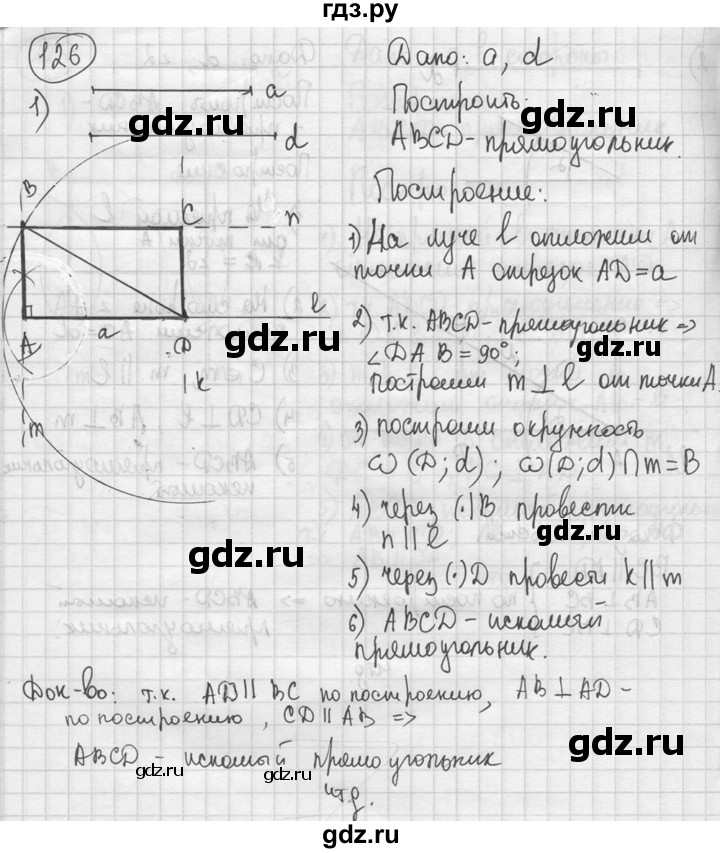 гдз.ру
126
1)
a
d
B
C
n
A
a
D
l
k
m
Дано: a, d
Построить:
ABCD - прямоугольник.
Построение:
1) На луче l отложим от
точки A отрезок AD = a
2) т.к. ABCD - прямоугольник =>
∠DAB = 90°;
построим m ⊥ l от точки A.
3) построим окружность
ω(D; d); ω(D; d) ∩ m = B
4) через (·) B провести
n || l
5) через (·) D провести k || m
6) ABCD - искомый
прямоугольник.
Док-во: т.к. AD || BC по построению, AB ⊥ AD -
по построению, CD || AB =>
ABCD - искомый прямоугольник
чтд.
gdz.ru
gdz.ru
gdz.ru
gdz.ru
gdz.ru
gdz.ru
gdz.ru
gdz.ru
gdz.ru
gdz.ru
gdz.ru
gdz.ru